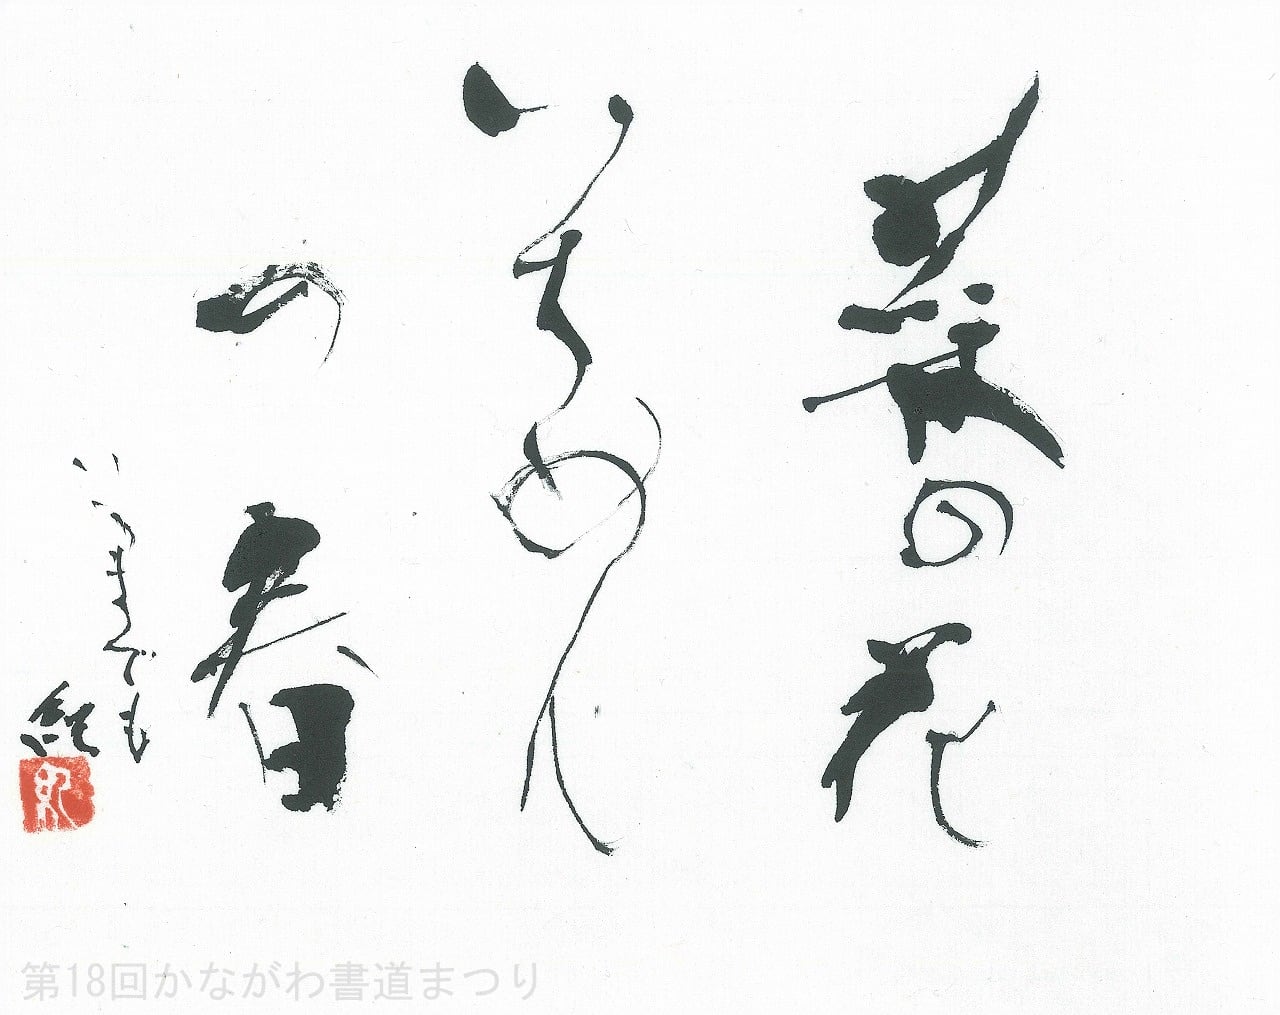 菜の花
いちめん
の春
いつまでも
紀
第18回かながわ書道まつり